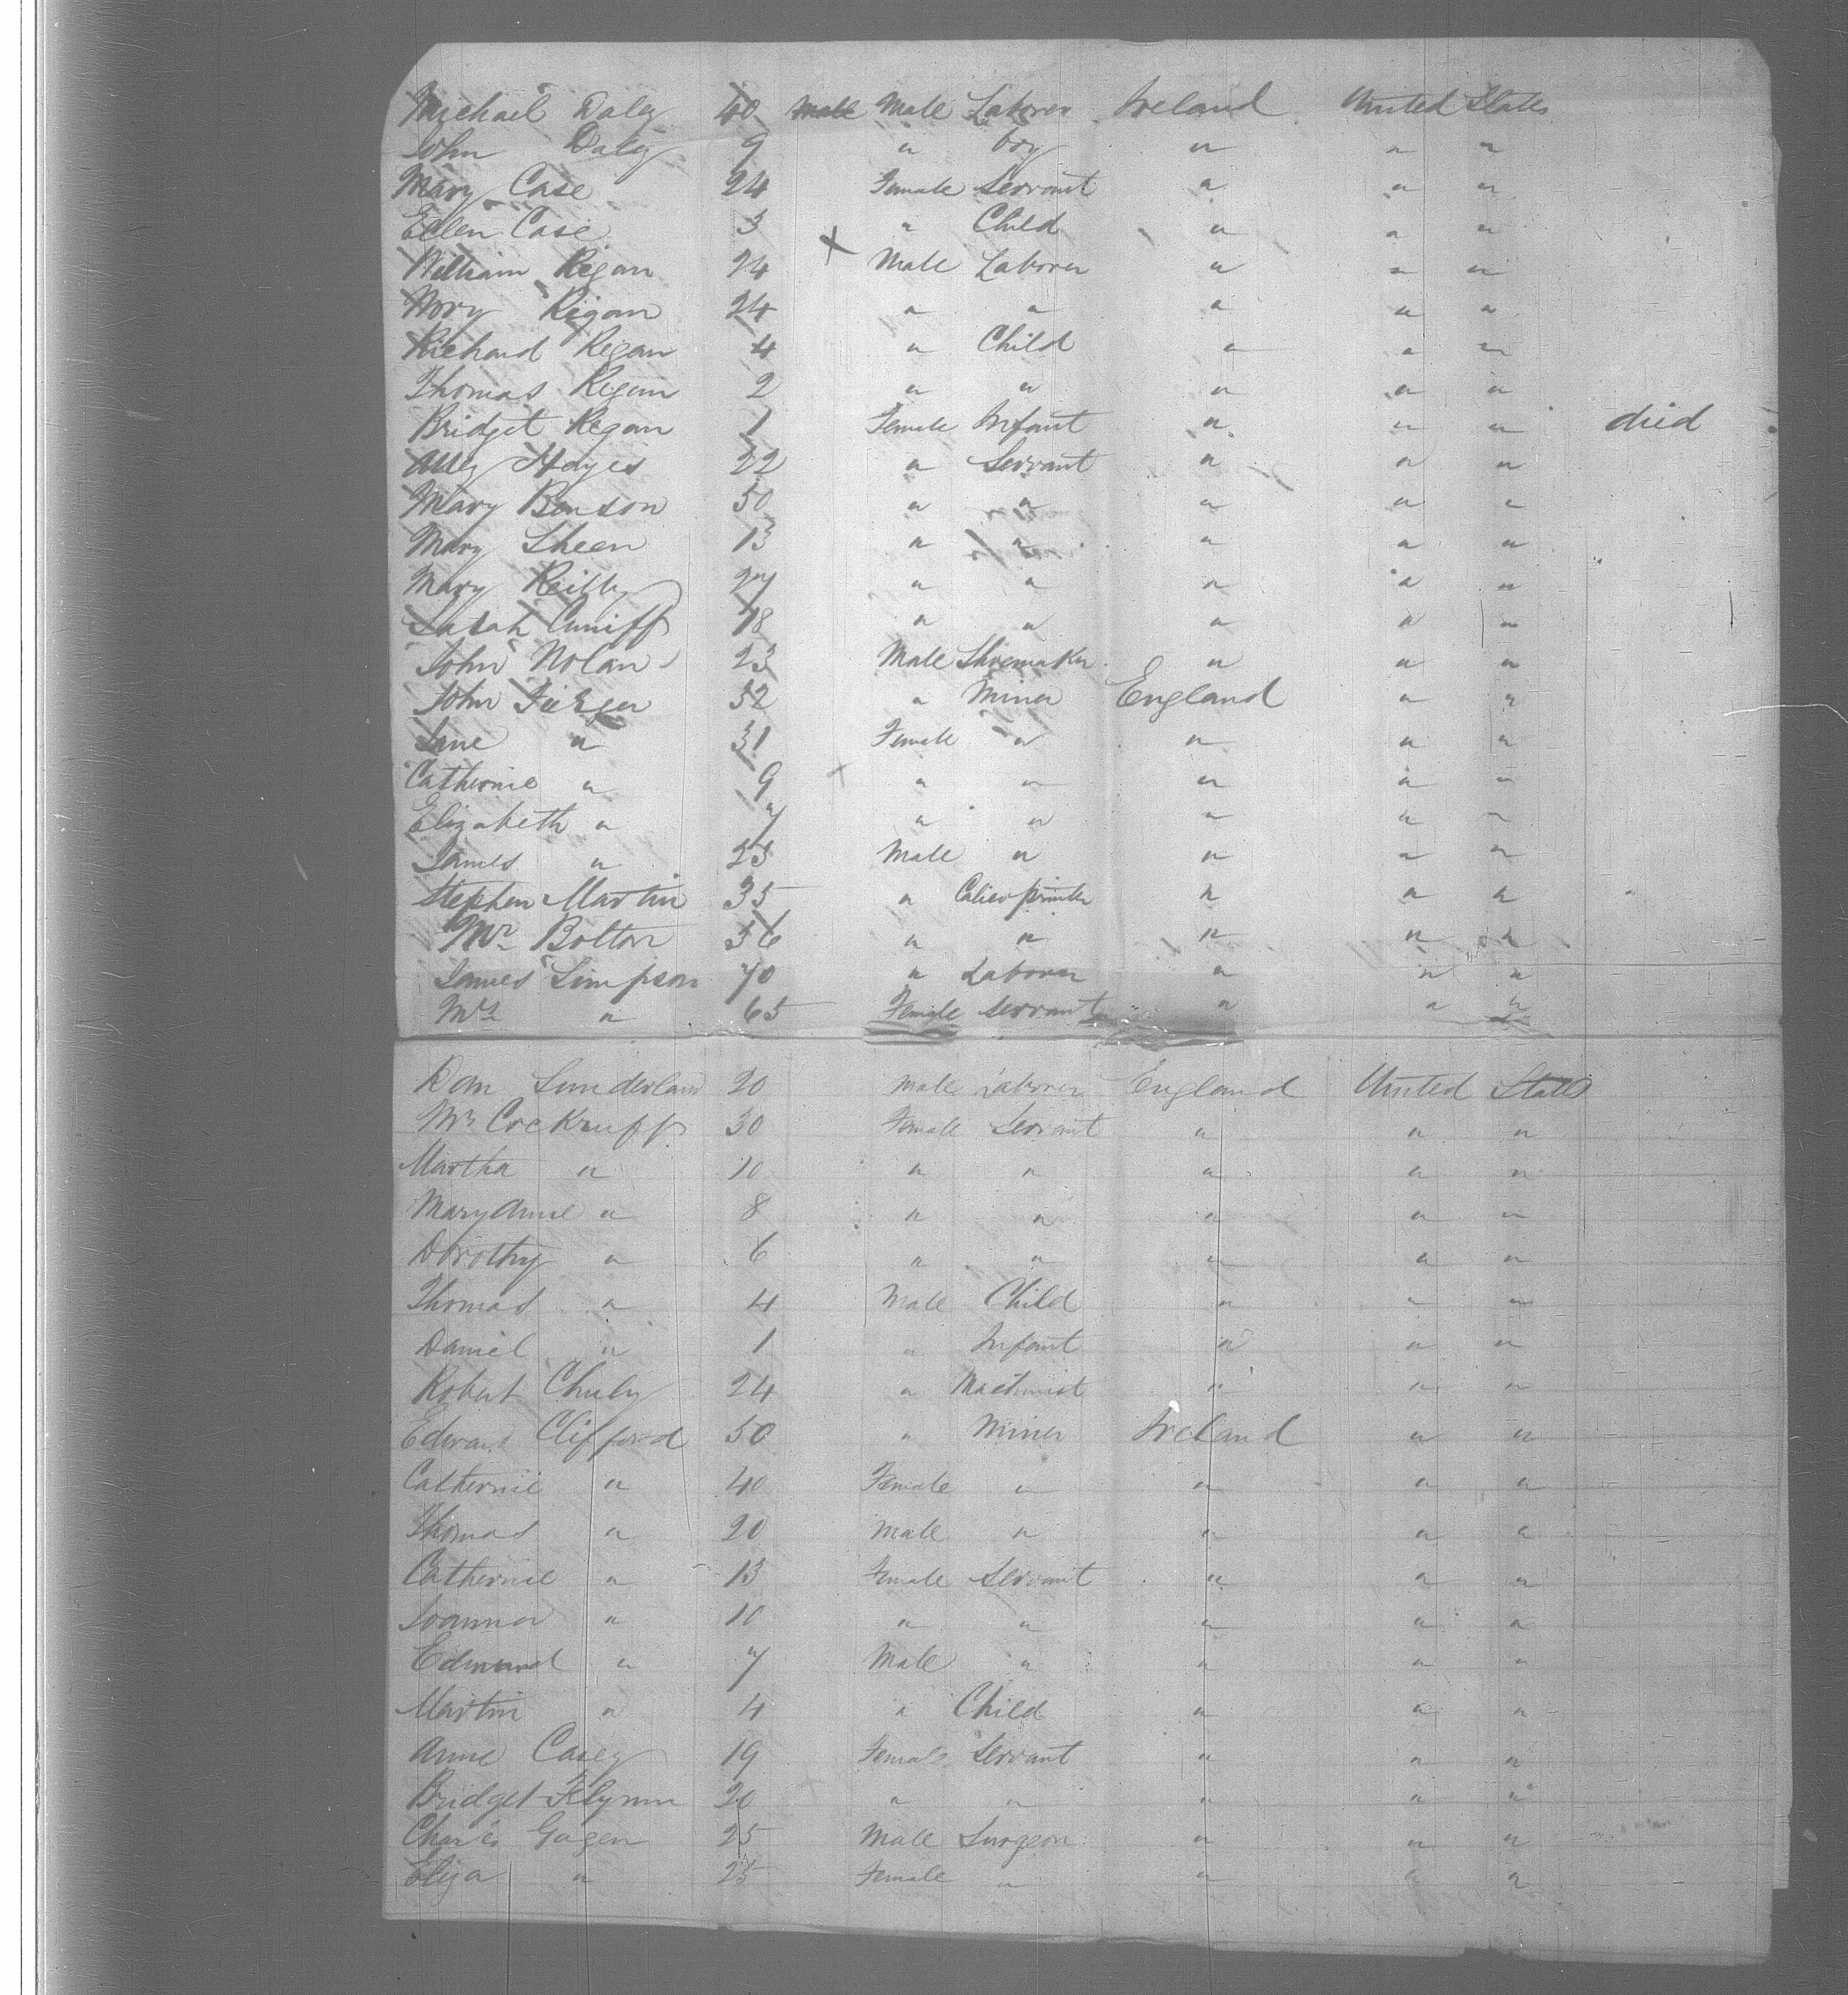 Michael Daley 40 Male Male Laborer Ireland United States
John Daley 9 " boy " " "
Mary Case 24 Female Servant " " "
Ellen Case 3 " Child " " "
William Regan 24 Male Laborer " " "
Mary Regan 24 " " " " "
Richard Regan 4 " Child " " "
Thomas Regan 2 " " " " "
Bridget Regan 1 Female Infant " " " died
Alley Hayes 22 " Servant " " "
Mary Benson 50 " " " " "
Mary Sheen 13 " " " " "
Mary Reilly 27 " " " " "
Sarah Cuniff 18 " " " " "
John Nolan 23 Male Shoemaker " " "
John 32 " Miner England " "
Jane " 31 Female " " " "
Catherine " 9 " " " " "
Elizabeth " 7 " " " " "
James " 23 Male " " " "
Stephen Martin 35 " Calico printer " " "
Mr Bolton 36 " " " " "
James Simpson 70 " Laborer " " "
Mrs " 65 Female Servant " " "
Sunderland 20 Male Laborer England United States
Mrs Cockruff 30 Female Servant " " "
Martha " 10 " " " " "
Mary Anne " 8 " " " " "
Dorothy " 6 " " " " "
Thomas " 4 Male Child " " "
Daniel " 1 " Infant " " "
Robert 24 " Machinist " " "
Edward Clifford 50 " Miner Ireland " "
Catherine " 40 Female " " " "
Thomas " 20 Male " " " "
Catherine " 13 Female Servant " " "
Joanna " 10 " " " " "
Edmund " 7 Male " " " "
Martin " 4 " Child " " "
Anne Casey 19 Female Servant " " "
Bridget Flynn 20 " " " " "
Charles Gagen 25 Male Surgeon " " "
Eliza " 25 Female " " " "